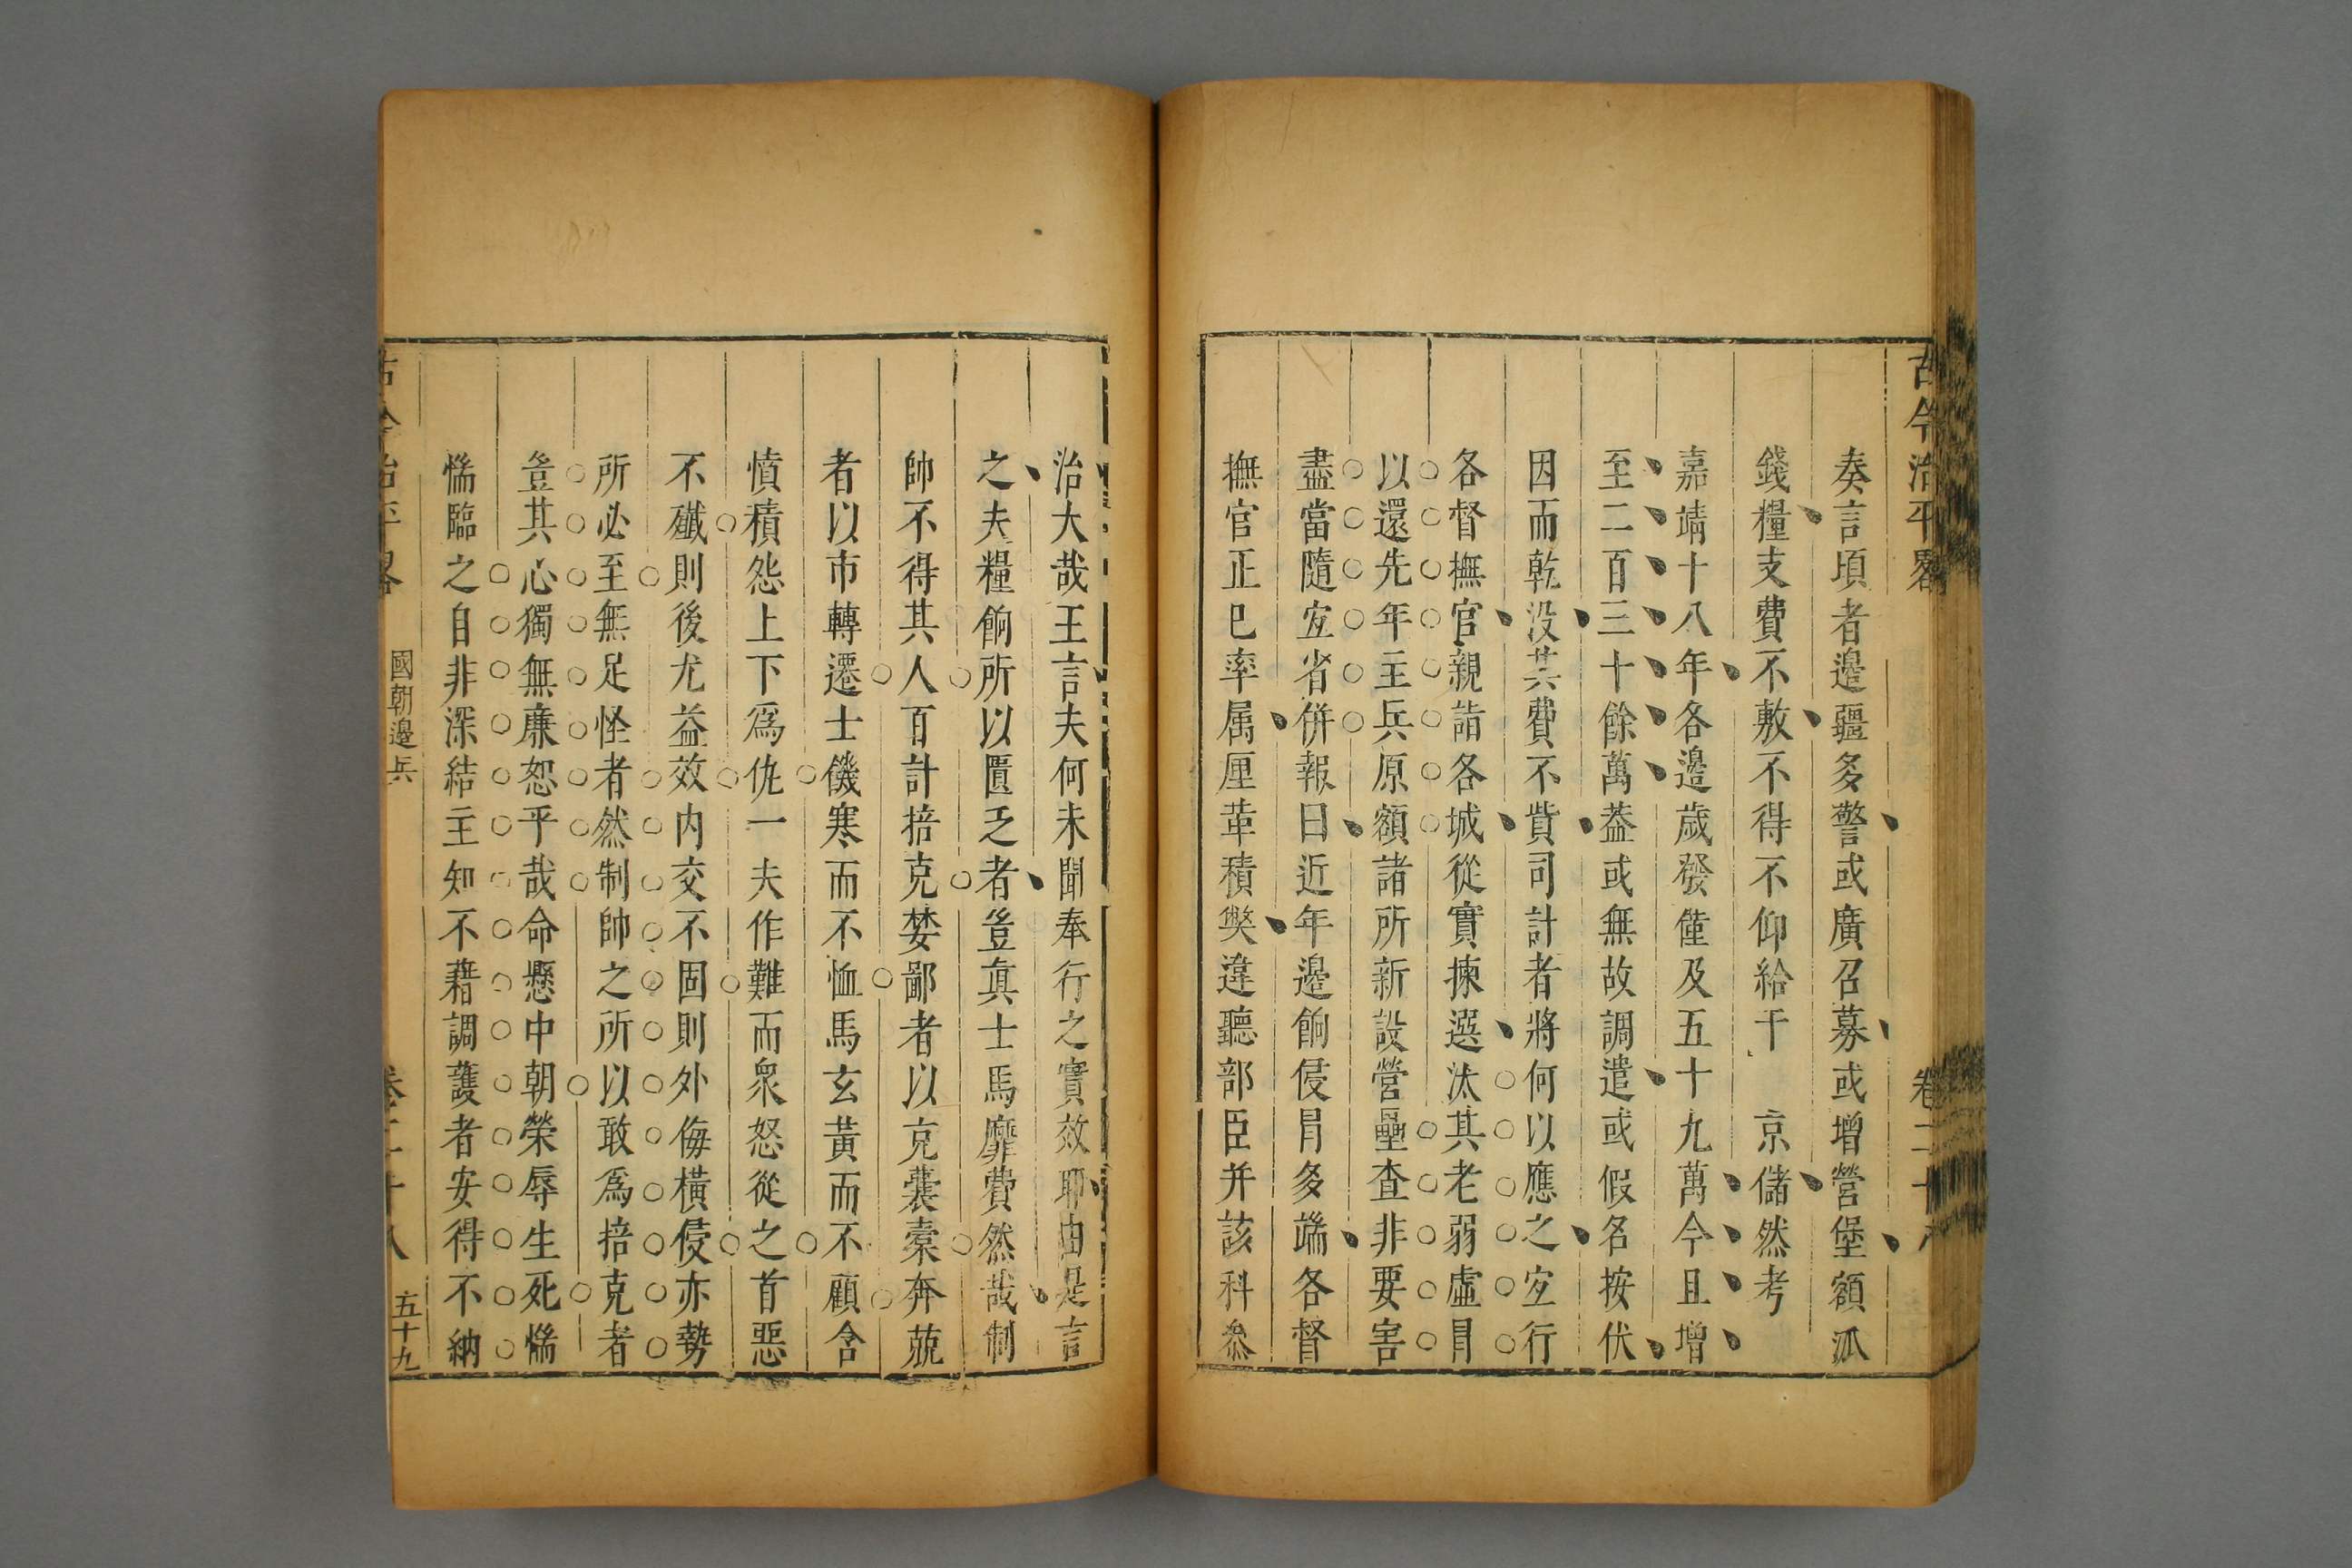 古今治平畧
卷二十八
奏言頃者邊疆多警或廣召募或增營堡額派
錢糧支費不敷不得不仰給于 京儲然考
嘉靖十八年各邊歲發僅及五十九萬今且增
至二百三十餘萬葢或無故調遣或假名按伏
因而乾没其費不貲司計者將何以應之宐行
各督撫官親詣各城從實揀選汰其老弱虛冐
以還先年主兵原額諸所新設營壘查非要害
盡當隨宐省併報曰近年邊餉侵冐多端各督
撫官正已率属厘革積獘違聽部臣并該科叅
治大哉王言夫何未聞奉行之實效耶由是言
之夫糧餉所以匱乏者豈真士馬靡費然哉制
帥不得其人百計掊克婪鄙者以克囊橐奔兢
者以市轉遷士饑寒而不恤馬玄黃而不顧含
憤積怨上下爲仇一夫作難而衆怒從之首惡
不殲則後尤益效内交不固則外侮橫侵亦勢
所必至無足怪者然制帥之所以敢爲掊克者
豈其心獨無亷恕乎哉命懸中朝榮辱生死惴
惴臨之自非深結主知不藉調護者安得不納
古今治平畧
國朝邊兵
卷二十八
五十九